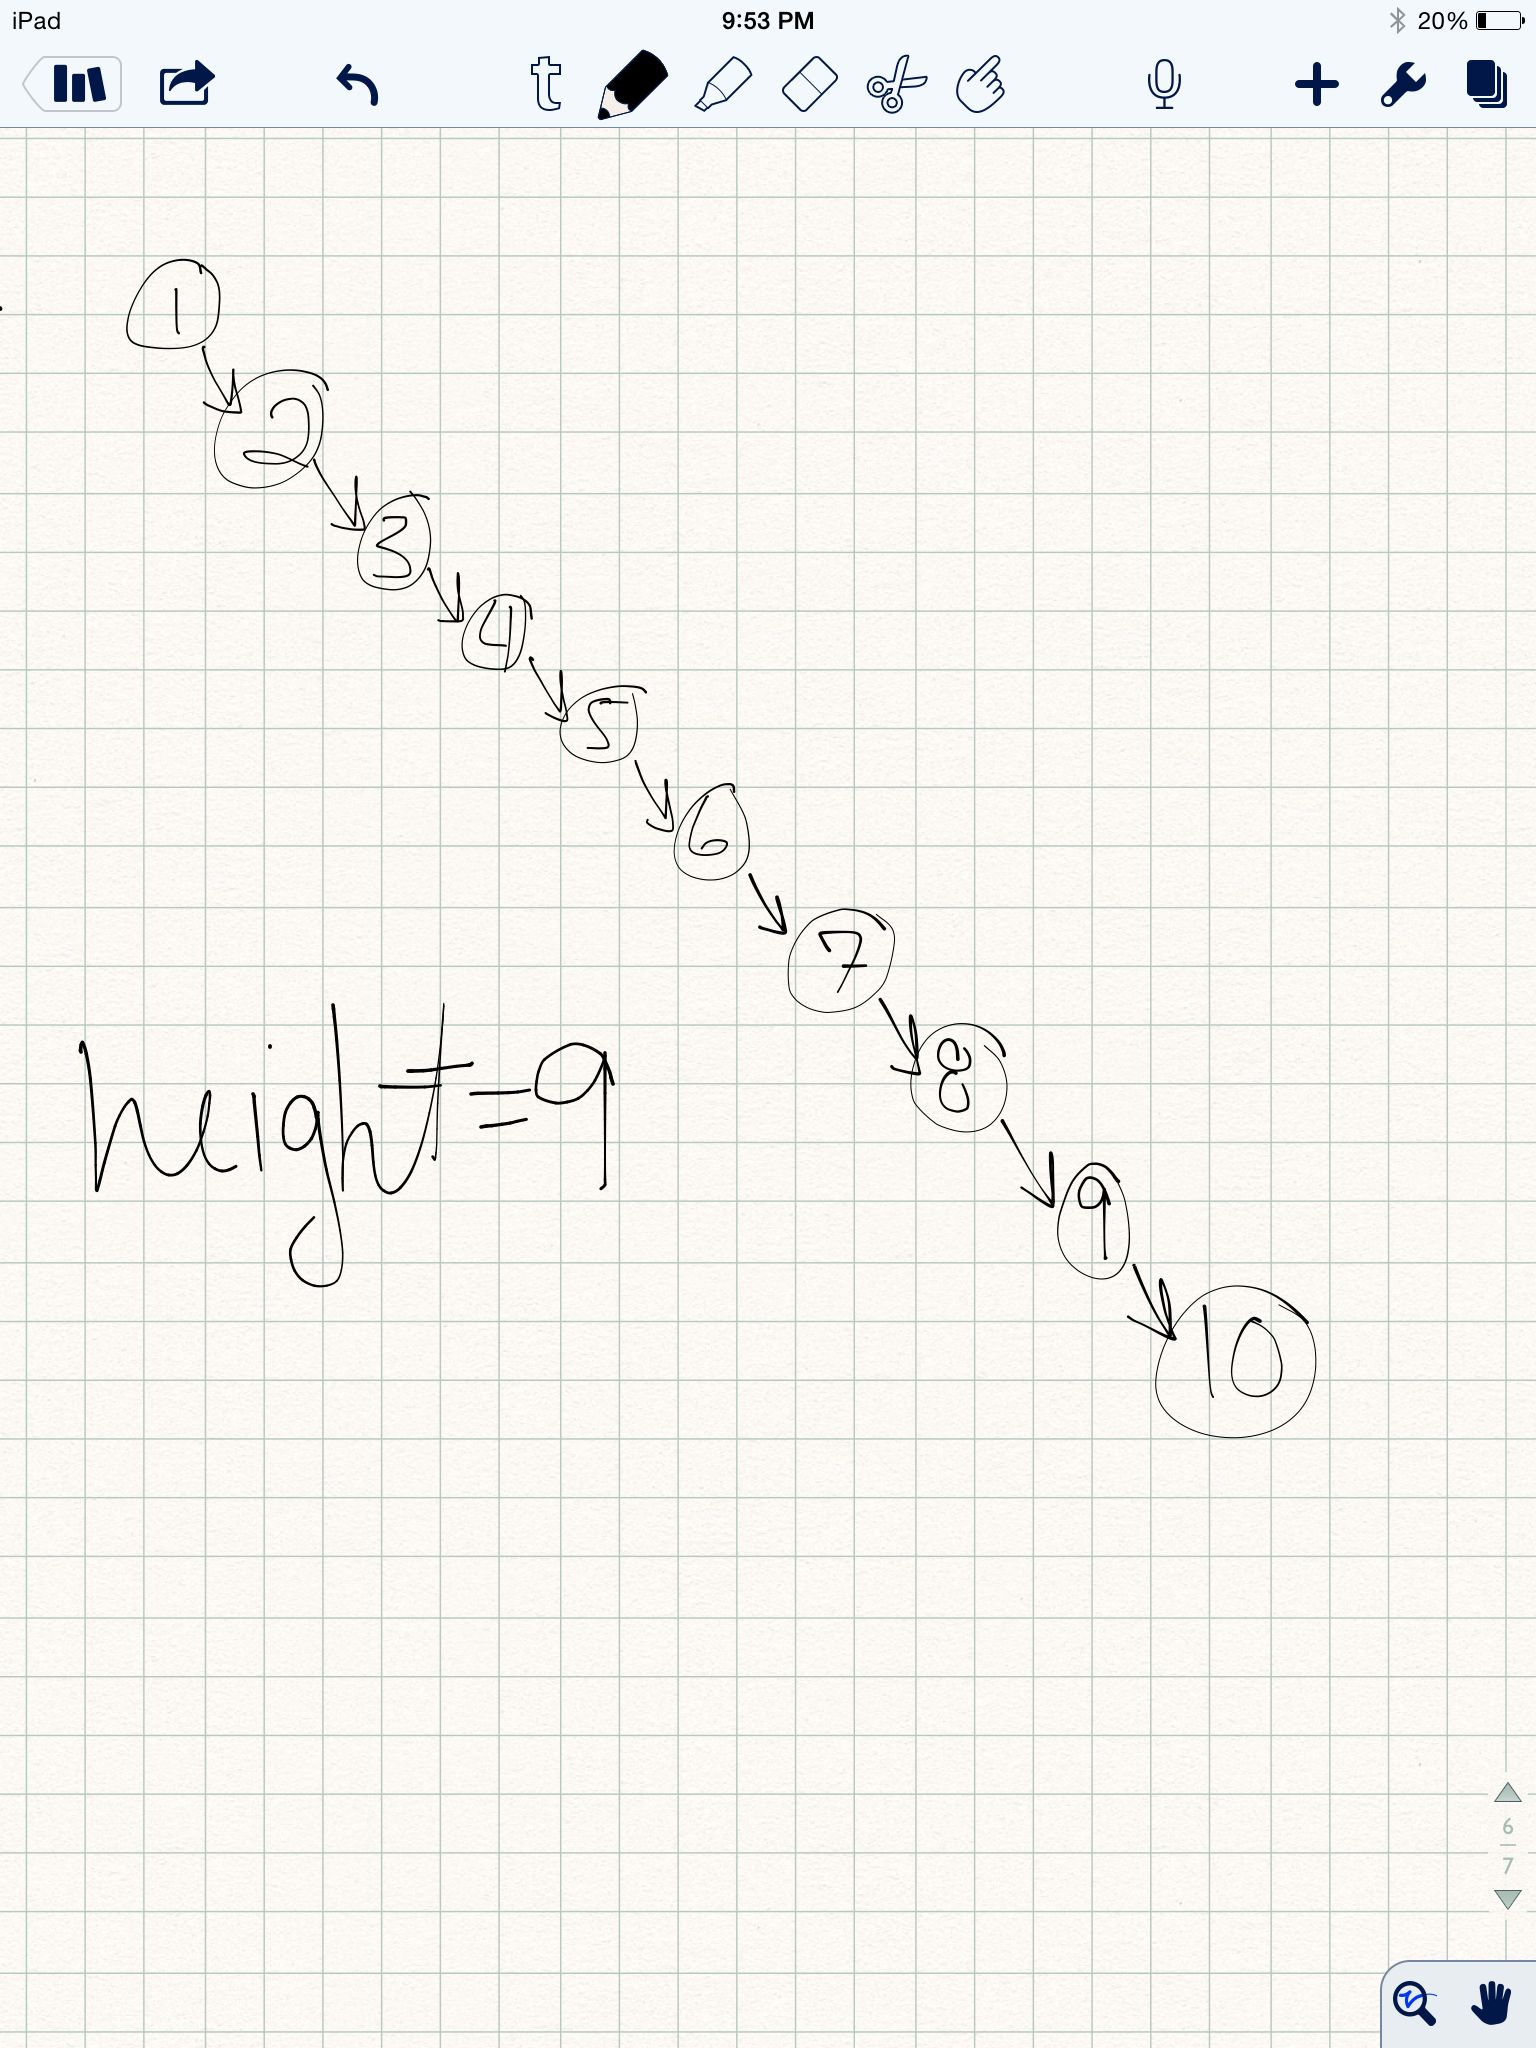 iPad 9:53 PM 20%
t
1
2
3
4
5
6
7
8
height=9
9
10
6
7